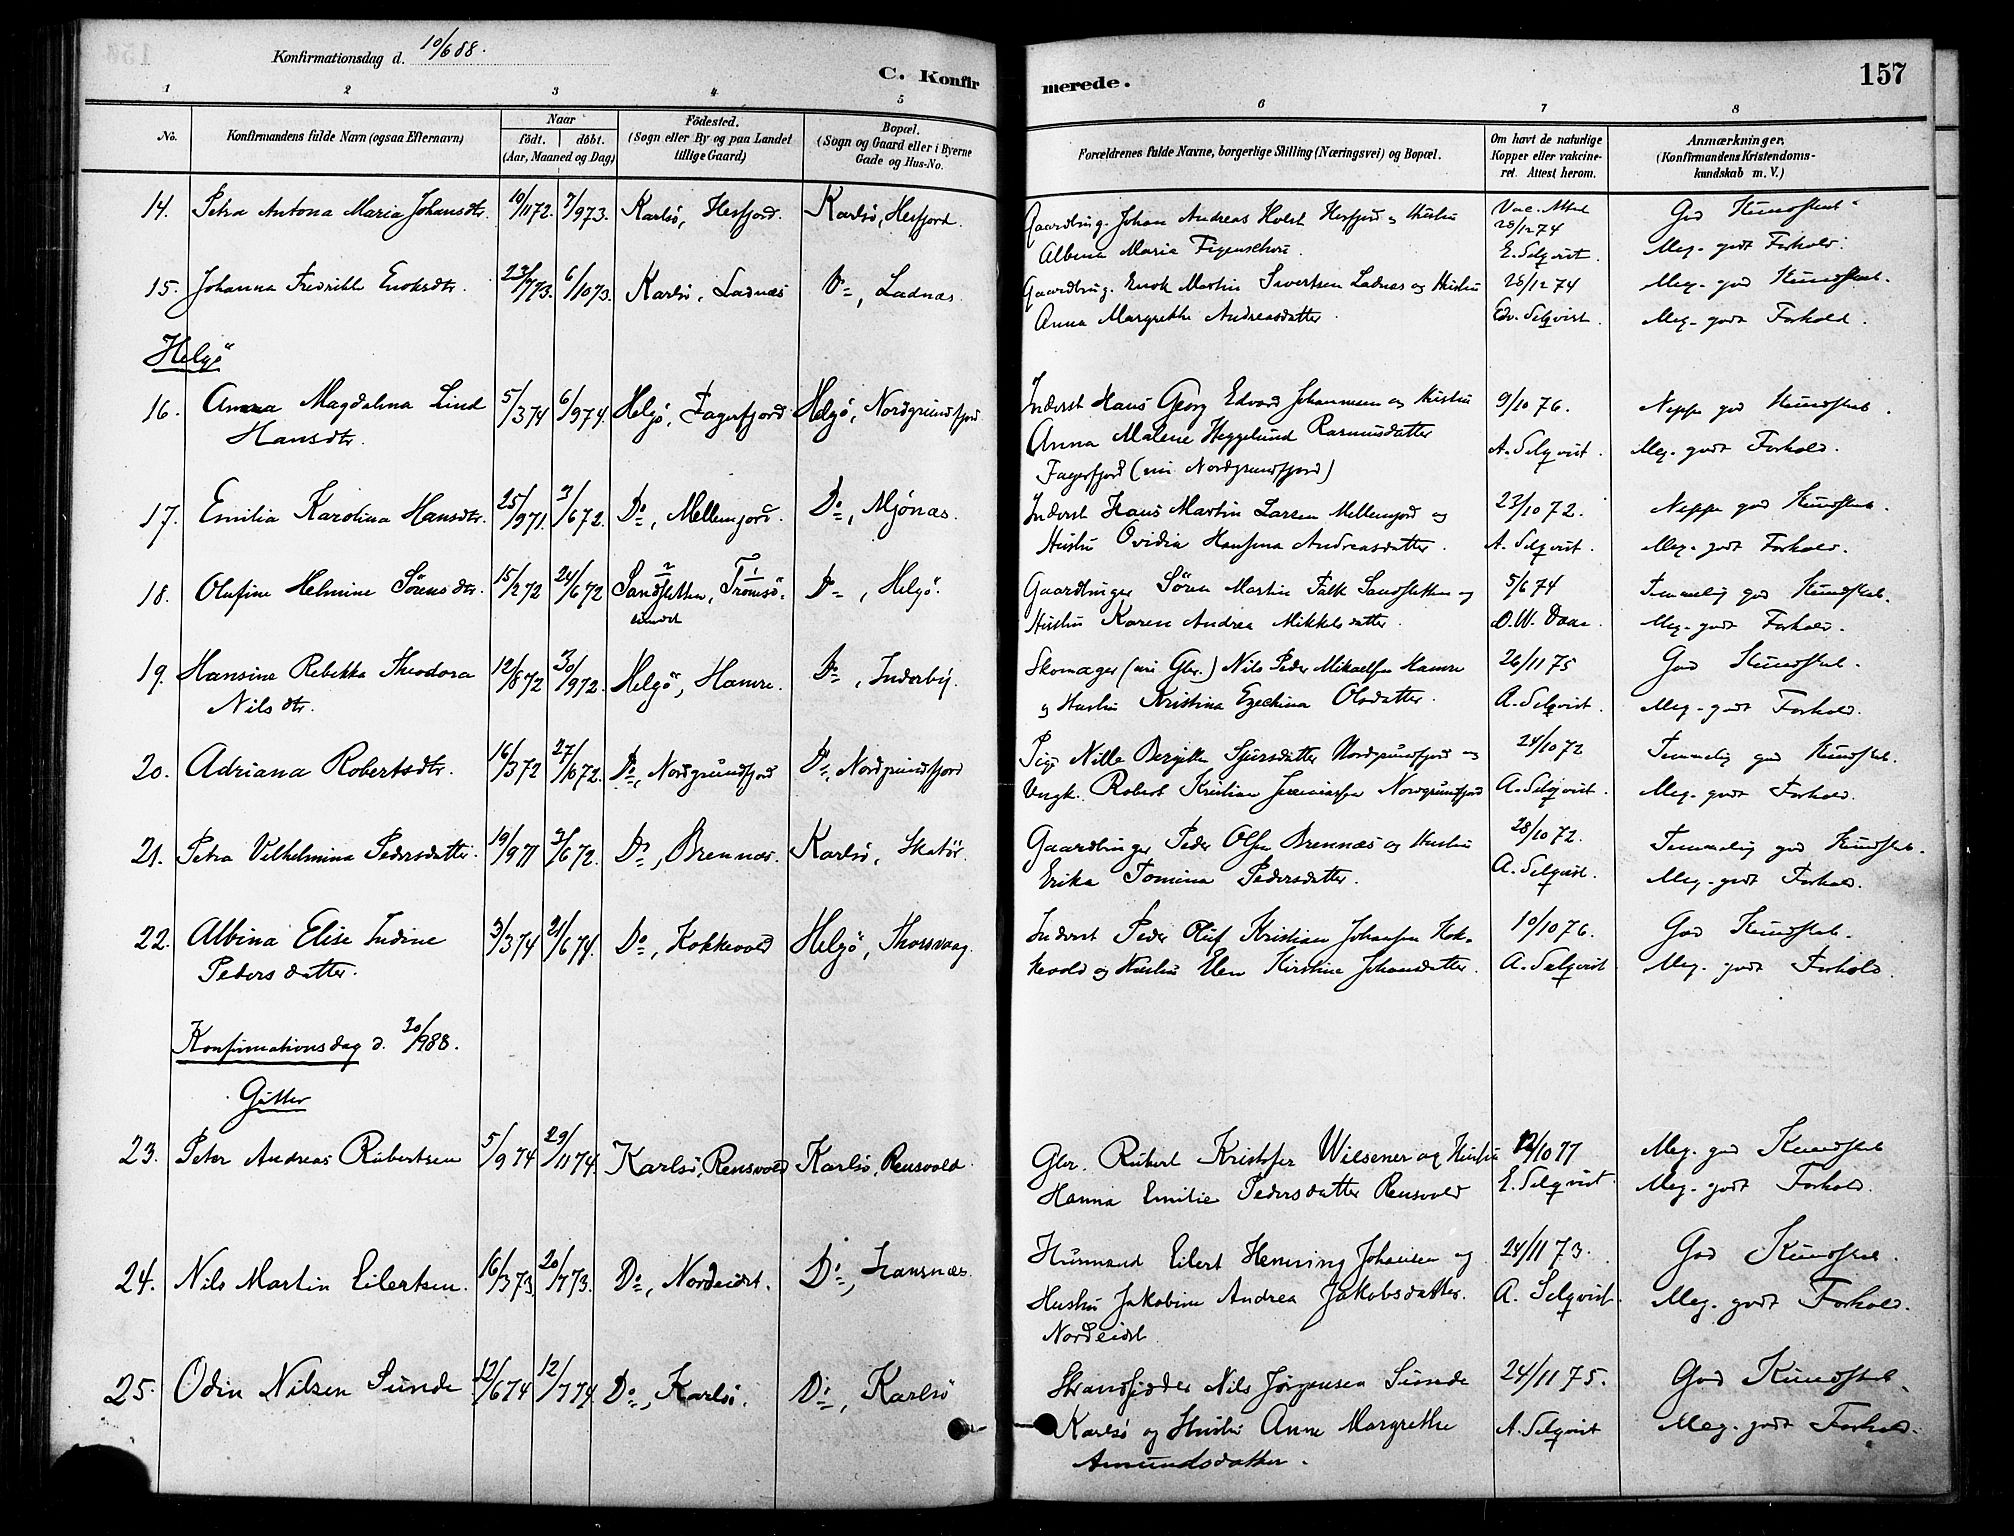 Konfirmationsdag d. 10/6 88.
C. Konfirmerede.
157
1 2 3 4 5 6 7 8
No.
Konfirmandens fulde Navn (ogsaa Efternavn)
Naar
födt. döbt.
(Aar, Maaned og Dag)
Födested.
(Sogn eller By og paa Landet
tillige Gaard)
Bopæl.
(Sogn og Gaard eller i Byerne
Gade og Hus-No.
Forældrenes fulde Navne, borgerlige Stilling (Næringsvei) og Bopæl.
Om havt de naturlige
Kopper eller vakcine-
ret. Attest herom.
Anmærkninger.
(Konfirmandens Kristendoms-
kundskab m. V.)
14. Petra Antona Maria Johansdtr. 10/11 72. 7/9 73. Karlsö, Hesfjord. Karlsö, Hesfjord. Gaardbrug. Johan Andreas Holst Hesfjord og Hustru Vac. Attest God Kundskab
Albine Maria Figenschou. 28/12 74 E. Selqvist. Meg. godt Forhold.
15. Johanna Fredrikke Enoksdtr. 23/7 73. 6/10 73. Karlsö, Ladnæs Do, Ladnæs. Gaardbrug. Enok Martin Sivertsen Ladnæs og Hustru 28/12 74 Meg. god Kundskab.
Anna Margrethe Andreasdatter. Edv. Selqvist. Meg. godt Forhold.
Helgö
16. Anna Magdalena Lind 5/3 74 6/9 74. Helgö, Fagerfjord Helgö, Nordgrundfjord Inderst Hans Georg Edvard Johannesen og Hustru 9/10 76. Neppe god Kundskab.
Hansdtr. Anna Malene Heggelund Rasmusdatter A. Selqvist. Meg. godt Forhold.
Fagerfjord (nu Nordgrundfjord)
17. Emilia Karolina Hansdtr. 25/9 71. 3/6 72. Do, Mellemjord. Do, Mjönæs. Inderst Hans Martin Larsen Mellemjord og 23/10 72. Neppe god Kundskab.
Hustru Ovidia Hansina Andreasdatter. A. Selqvist. Meg. godt Forhold.
18. Olufine Helmine Sörensdtr. 15/2 72 24/6 72 Sandsletten, Tromsö- Do, Helgö. Gaardbruger Sören Martin Falk Sandsletten og 5/6 74 Temmelig god Kundskab.
sundet Hustru Karen Andrea Mikkelsdatter. D. W. Daae. Meg. godt Forhold.
19. Hansine Rebekka Theodora 12/8 72 30/9 72. Helgö, Hamre. Do, Inderby. Skomager (nu Gbr.) Nils Peder Mikaelsen Hamre 26/11 75 God Kundskab.
Nilsdtr. og Hustru Kristina Ezechina Olsdatter. A. Selqvist. Meg. godt Forhold.
20. Adriana Robertsdtr. 16/3 72 27/10 72. Do, Nordgrundfjord Do, Nordgrundfjord Pige Nille Bergitte Sjursdatter Nordgrundfjord og 24/10 72 Temmelig god Kundskab.
Ungk. Robert Kristian Jeremiassen Nordgrundfjord A. Selqvist. Meg. godt Forhold.
21. Petra Vilhelmina Pedersdatter. 19/9 71 2/6 72. Do, Brennæs. Karlsö, Skatör. Gaardbruger Peder Olsen Brennæs og Hustru 28/10 72. Temmelig god Kundskab.
Erika Tomina Pedersdatter. A. Selqvist. Meg. godt Forhold.
22. Albina Elise Indine 3/3 74 21/6 74. Do, Kokkevold Helgö, Thorsvaag. Inderst Peder Oluf Kristian Johansen Kok- 10/10 76. God Kundskab.
Pedersdatter. kevold og Hustru Elen Kirstine Johansdatter. A. Selqvist. Meg. godt Forhold.
Konfirmationsdag d. 30/9 88.
Gutter
23. Peter Andreas Robertsen 5/9 74 29/11 74. Karlsö, Rensvold Karlsö, Rensvold. Gbr. Robert Kristofer Wilsener og Hustru 12/10 77 Meg. god Kundskab
Hanna Emilie Pedersdatter Rensvold E. Selqvist. Meg. godt Forhold.
24. Nils Martin Eilertsen. 16/3 73. 20/7 73. Do, Nordeidet. Do, Hansnæs. Husmand Eilert Henning Johansen og 24/11 73. God Kundskab.
Hustru Jakobine Andrea Jakobsdatter. A. Selqvist. Meg. godt Forhold.
Nordeidet
25. Odin Nilsen Sunde 12/6 74 12/7 74. Do, Karlsö. Do, Karlsö Strandsidder Nils Jörgensen Sunde 24/11 75. God Kundskab.
Karlsö og Hustru Anne Margrethe A. Selqvist Meg. godt Forhold.
Amundsdatter.